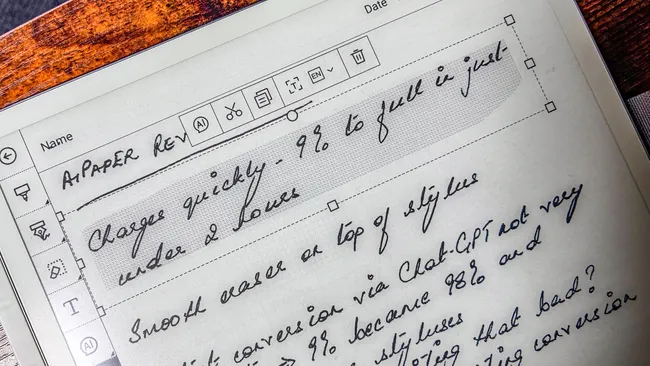 Date
Name
AI
EN
AI PAPER REV
Charges quickly - 9% to full in just
under 2 hours
Smooth eraser on top of stylus
conversion via Chat-GPT not very
9% became 98% and
styluses
that bad?
conversion
T
AI